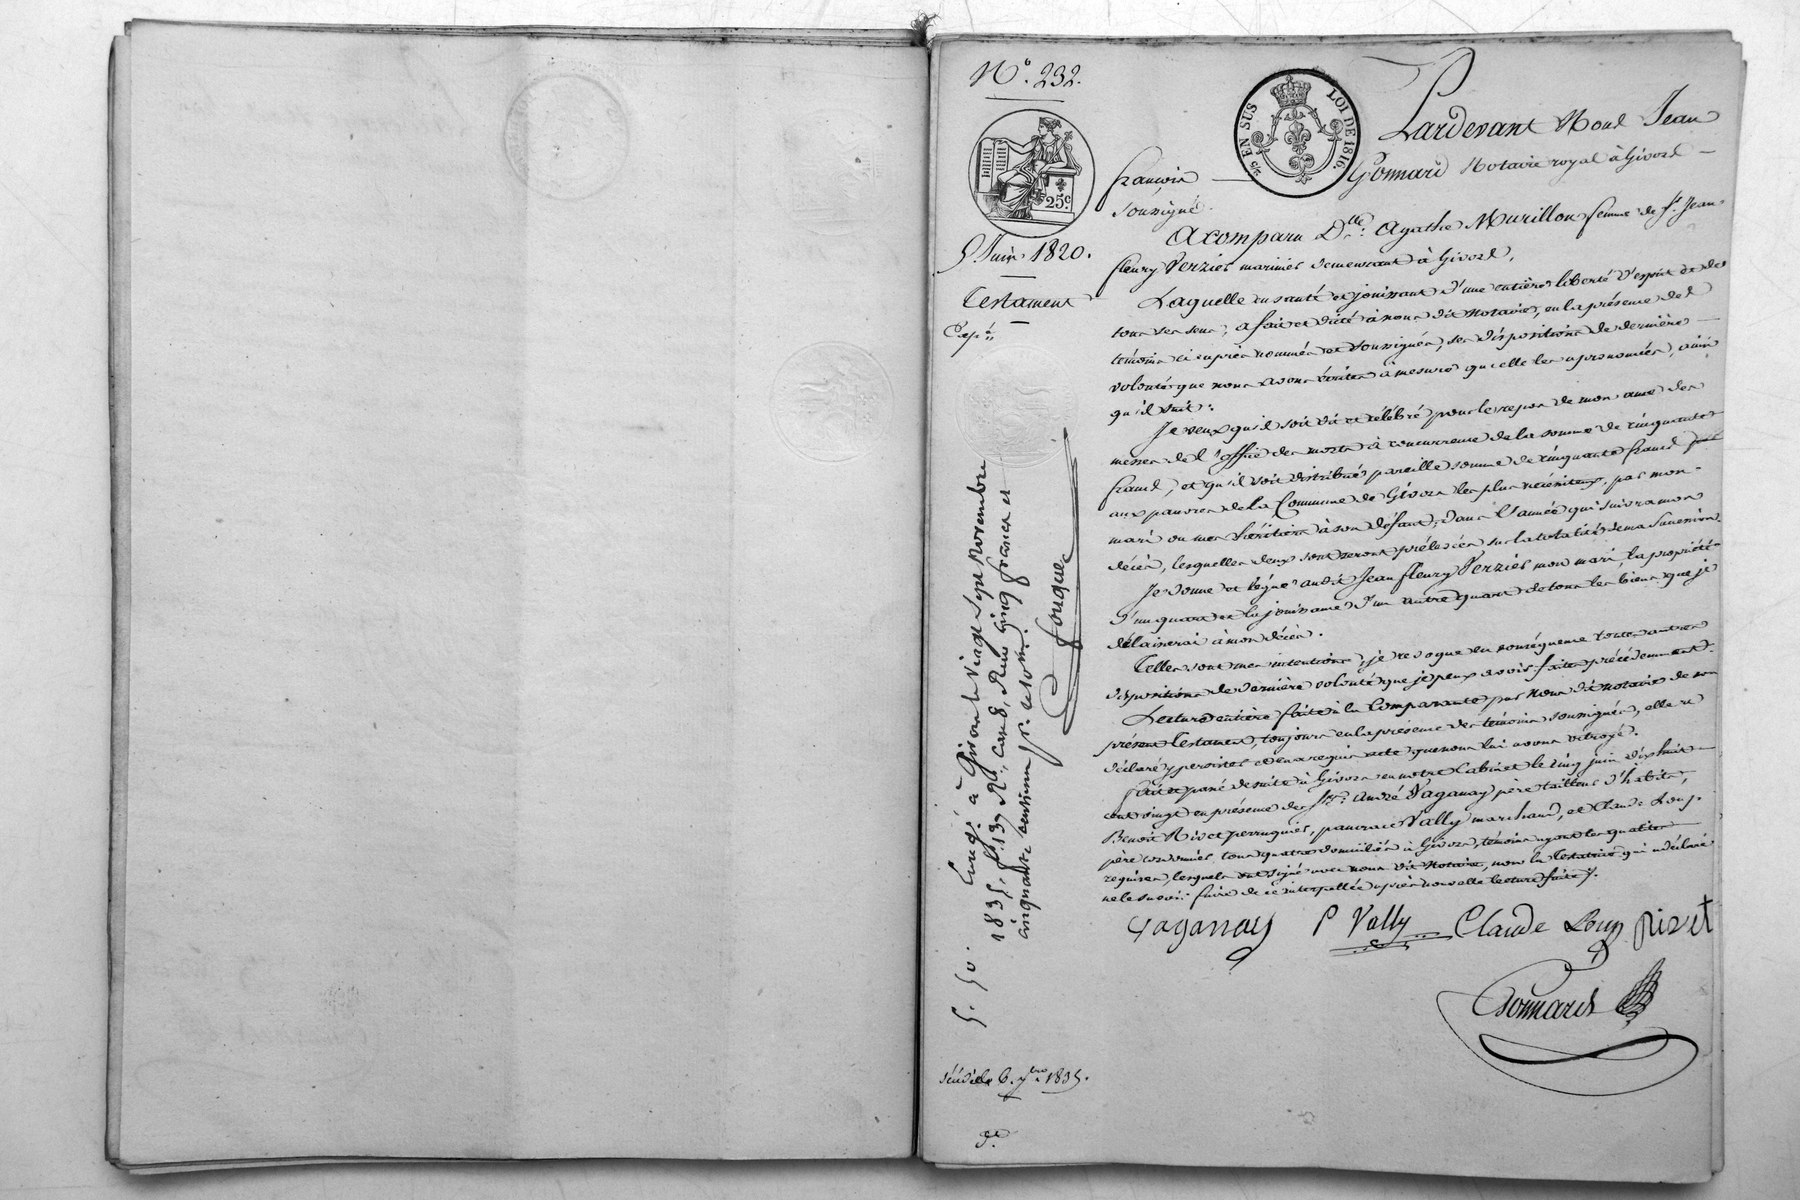 N.° 232.
EN SUS
LOI DE 1816.
25c.
5 Juin 1820.
Testament
Pardevant Nous Jean
françois Gonnard Notaire royal à Givors
soussigné.
A comparu D.lle Agathe Murillon femme de S.r Jean
fleury Verzier marinier demeurant à Givors,
Laquelle en santé et jouissant d'une entière liberté d'esprit et de
tous ses sens, a fait et dicté à nous dit notaire, en la présence des
témoins ci après nommés et soussignés, ses dispositions de dernière
volonté que nous avons écrites à mesure qu'elle les a prononcées, ainsi
qu'il suit:
Je veux qu'il soit dit et célébré pour le repos de mon ame des
messes de l'office des morts à concurrence de la somme de cinquante
francs, et qu'il soit distribué pareille somme de cinquante francs
aux pauvres de la Commune de Givors les plus nécessiteux, par mon
mari ou mes héritiers à son défaut, dans l'année qui suivra mon
décès, lesquelles deux sommes seront prélevées sur la totalité de ma Succession.
Je donne et lègue audit Jean fleury Verzier mon mari, la propriété
d'un quart et la jouissance d'un autre quart de tous les biens que je
délaisserai à mon décès.
Telles sont mes intentions, je revoque en conséquence toutes autres
dispositions de dernière volonté que je peux avoir faites précédemment.
Lecture entière faite à la Comparante par Nous dit notaire de son
présent Testament, toujours en la présence des témoins soussignés, elle a
déclaré y persister et en a requis acte que nous lui avons octroyé.
fait et passé de suite à Givors en notre Cabinet le cinq juin dix huit
cent vingt en présence des S.rs André Vaganay père tailleur d'habits,
Benoit Rivet perruquier, pancrace Vally marchand, et Claude Loup
père cordonnier, tous quatre domiciliés à Givors, témoins ayant les qualités
requises, lesquels ont signé avec nous dit Notaire, non la Testatrice qui a déclaré
ne le savoir faire de ce interpellée après nouvelle lecture faite.
Vaganay P Vally Claude Loup Rivet
Gonnard
Enreg.é à Givors le Vingt Sept Novembre
1835, f.° 13, R.° Case 8, Reçu Cinq francs et
cinquante centimes pr.
fouque
5. 50.
1835.